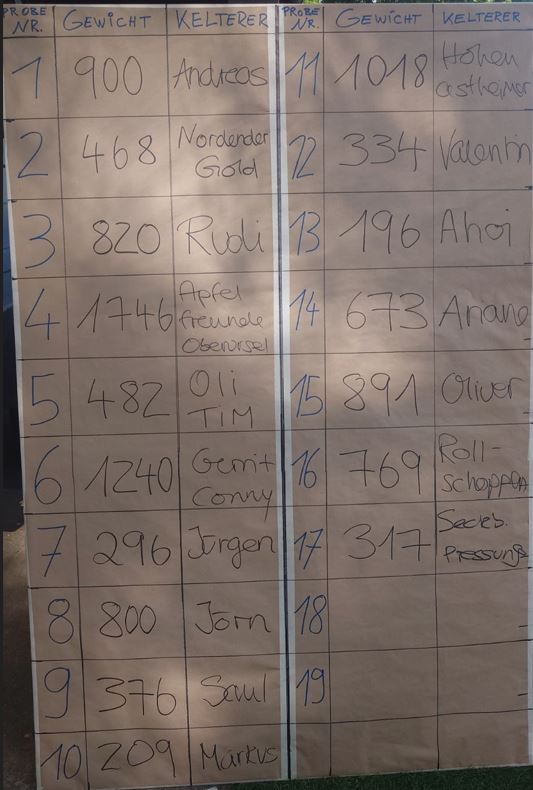 PROBE NR. GEWICHT KELTERER
1 900 Andreas
2 468 Nordender Gold
3 820 Rudi
4 1746 Apfel freunde Oberursel
5 482 Oli TIM
6 1240 Gerrit Conny
7 296 Jürgen
8 800 Jörn
9 376 Saul
10 209 Markus
PROBE NR. GEWICHT KELTERER
11 1018 Hohen astheimer
12 334 Valentin
13 196 Ahoi
14 673 Ariane
15 891 Oliver
16 769 Roll- schoppen
17 317 Pressung
18
19